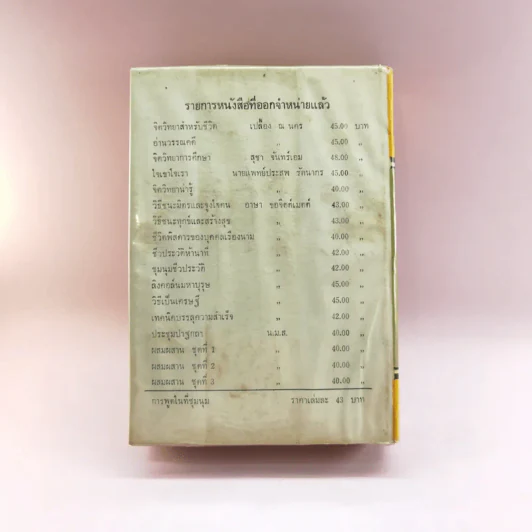 รายการหนังสือที่ออกจำหน่ายแล้ว
จิตวิทยาสำหรับชีวิต เปลื้อง ณ นคร 45.00 บาท
อ่านวรรณคดี ,, 45.00 ,,
จิตวิทยาการศึกษา สุชา จันทร์เอม 48.00 ,,
ใจเขาใจเรา นายแพทย์ประสพ รัตนากร 45.00 ,,
จิตวิทยาน่ารู้ ,, 40.00 ,,
วิธีชนะมิตรและจูงใจคน อาษา ขอจิตต์เมตต์ 43.00 ,,
วิธีชนะทุกข์และสร้างสุข ,, 43.00 ,,
ชีวิตพิสดารของบุคคลเรืองนาม ,, 40.00 ,,
ชีวประวัติห้านาที ,, 42.00 ,,
ชุมนุมชีวประวัติ ,, 42.00 ,,
ลิงคอล์นมหาบุรุษ ,, 45.00 ,,
วิธีเป็นเศรษฐี ,, 45.00 ,,
เทคนิคบรรลุความสำเร็จ ,, 42.00 ,,
ประชุมปาฐกถา น.ม.ส. 40.00 ,,
ผสมผสาน ชุดที่ 1 ,, 40.00 ,,
ผสมผสาน ชุดที่ 2 ,, 40.00 ,,
ผสมผสาน ชุดที่ 3 ,, 40.00 ,,
การพูดในที่ชุมนุม ราคาเล่มละ 43 บาท